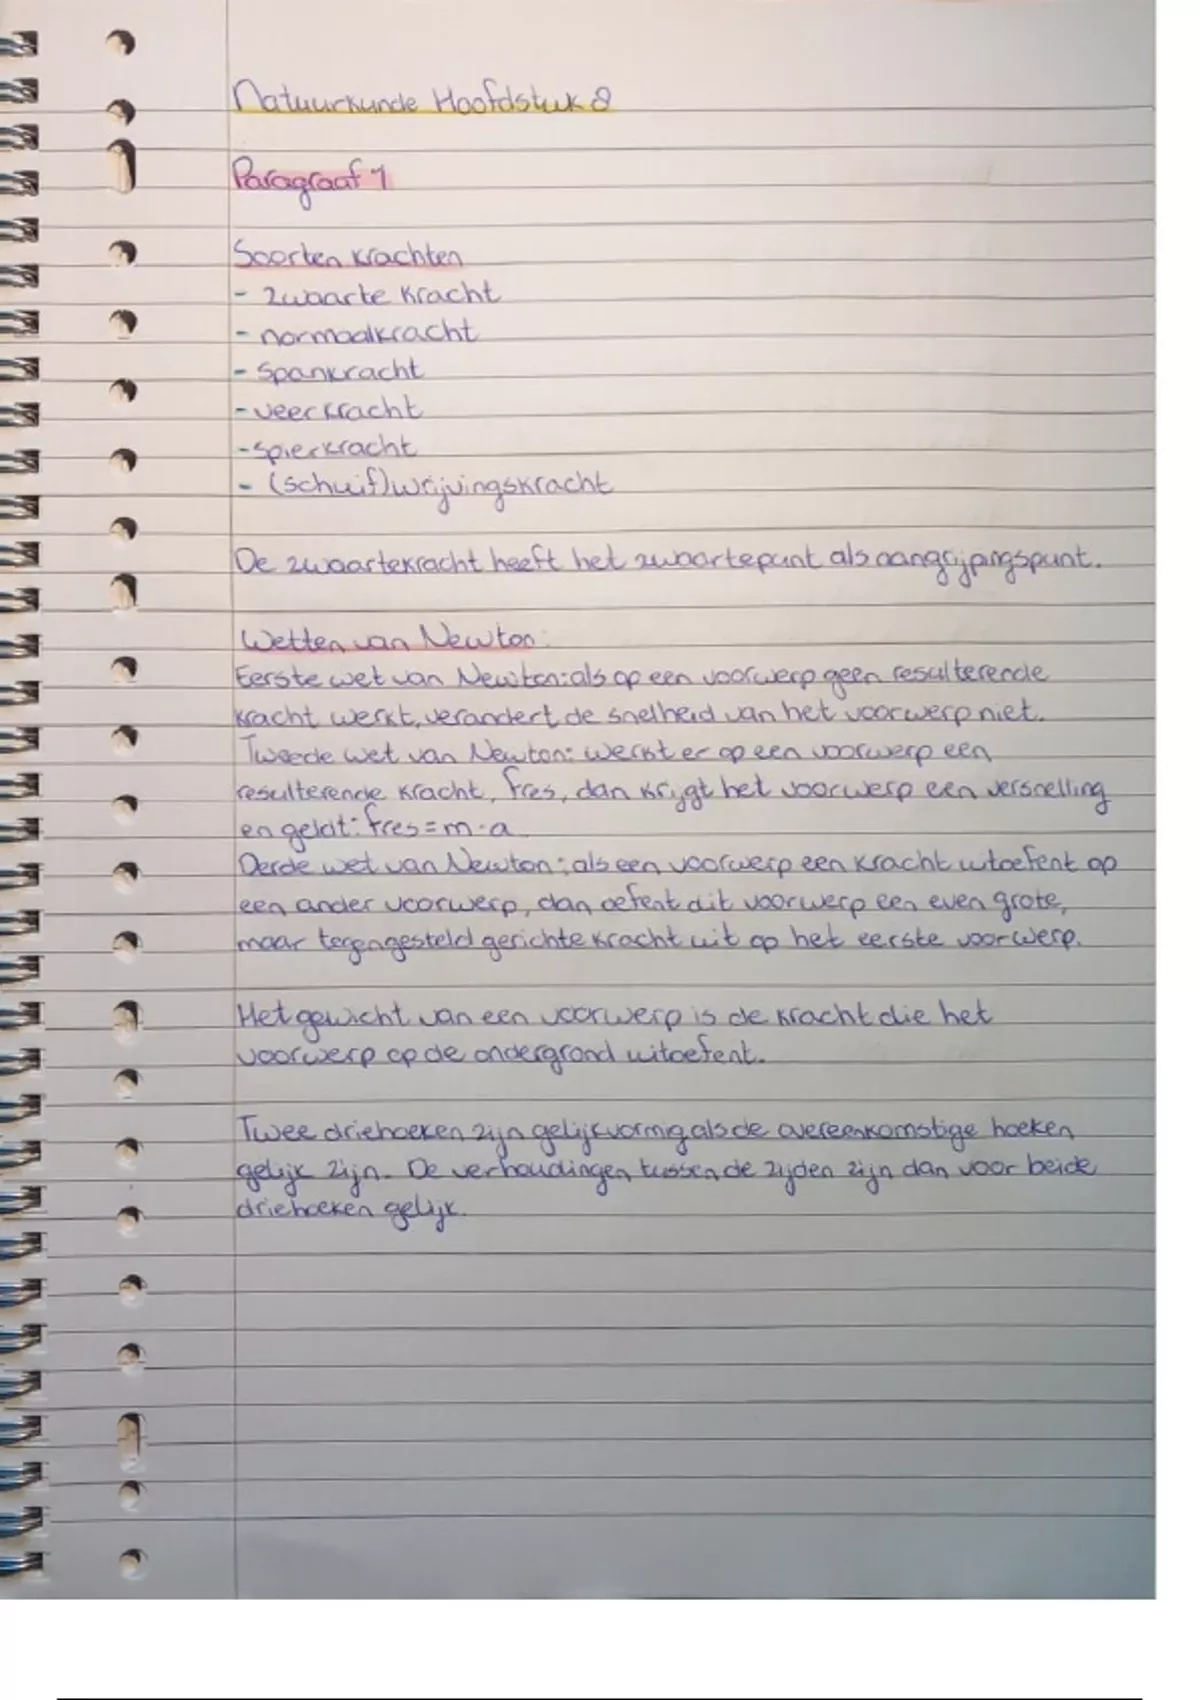 Natuurkunde Hoofdstuk 8
Paragraaf 1
Soorten krachten
- zwaarte kracht
- normaalkracht
- spankracht
- veerkracht
- spierkracht
- (schuif)wrijvingskracht
De zwaartekracht heeft het zwaartepunt als aangrijpingspunt.
Wetten van Newton:
Eerste wet van Newton: als op een voorwerp geen resulterende
kracht werkt, verandert de snelheid van het voorwerp niet.
Tweede wet van Newton: werkt er op een voorwerp een
resulterende kracht, Fres, dan krijgt het voorwerp een versnelling
en geldt: Fres = m · a
Derde wet van Newton: als een voorwerp een kracht uitoefent op
een ander voorwerp, dan oefent dit voorwerp een even grote,
maar tegengesteld gerichte kracht uit op het eerste voorwerp.
Het gewicht van een voorwerp is de kracht die het
voorwerp op de ondergrond uitoefent.
Twee driehoeken zijn gelijkvormig als de overeenkomstige hoeken
gelijk zijn. De verhoudingen tussen de zijden zijn dan voor beide
driehoeken gelijk.